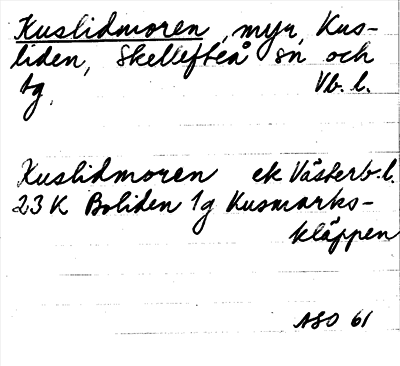 Kuslidmoren, myr, Kus-
liden, Skellefteå sn och
tg, Vb. l.
Kuslidmoren ek Västerb.l.
23 K Boliden 1g Kusmarks-
kläppen
ASO 61